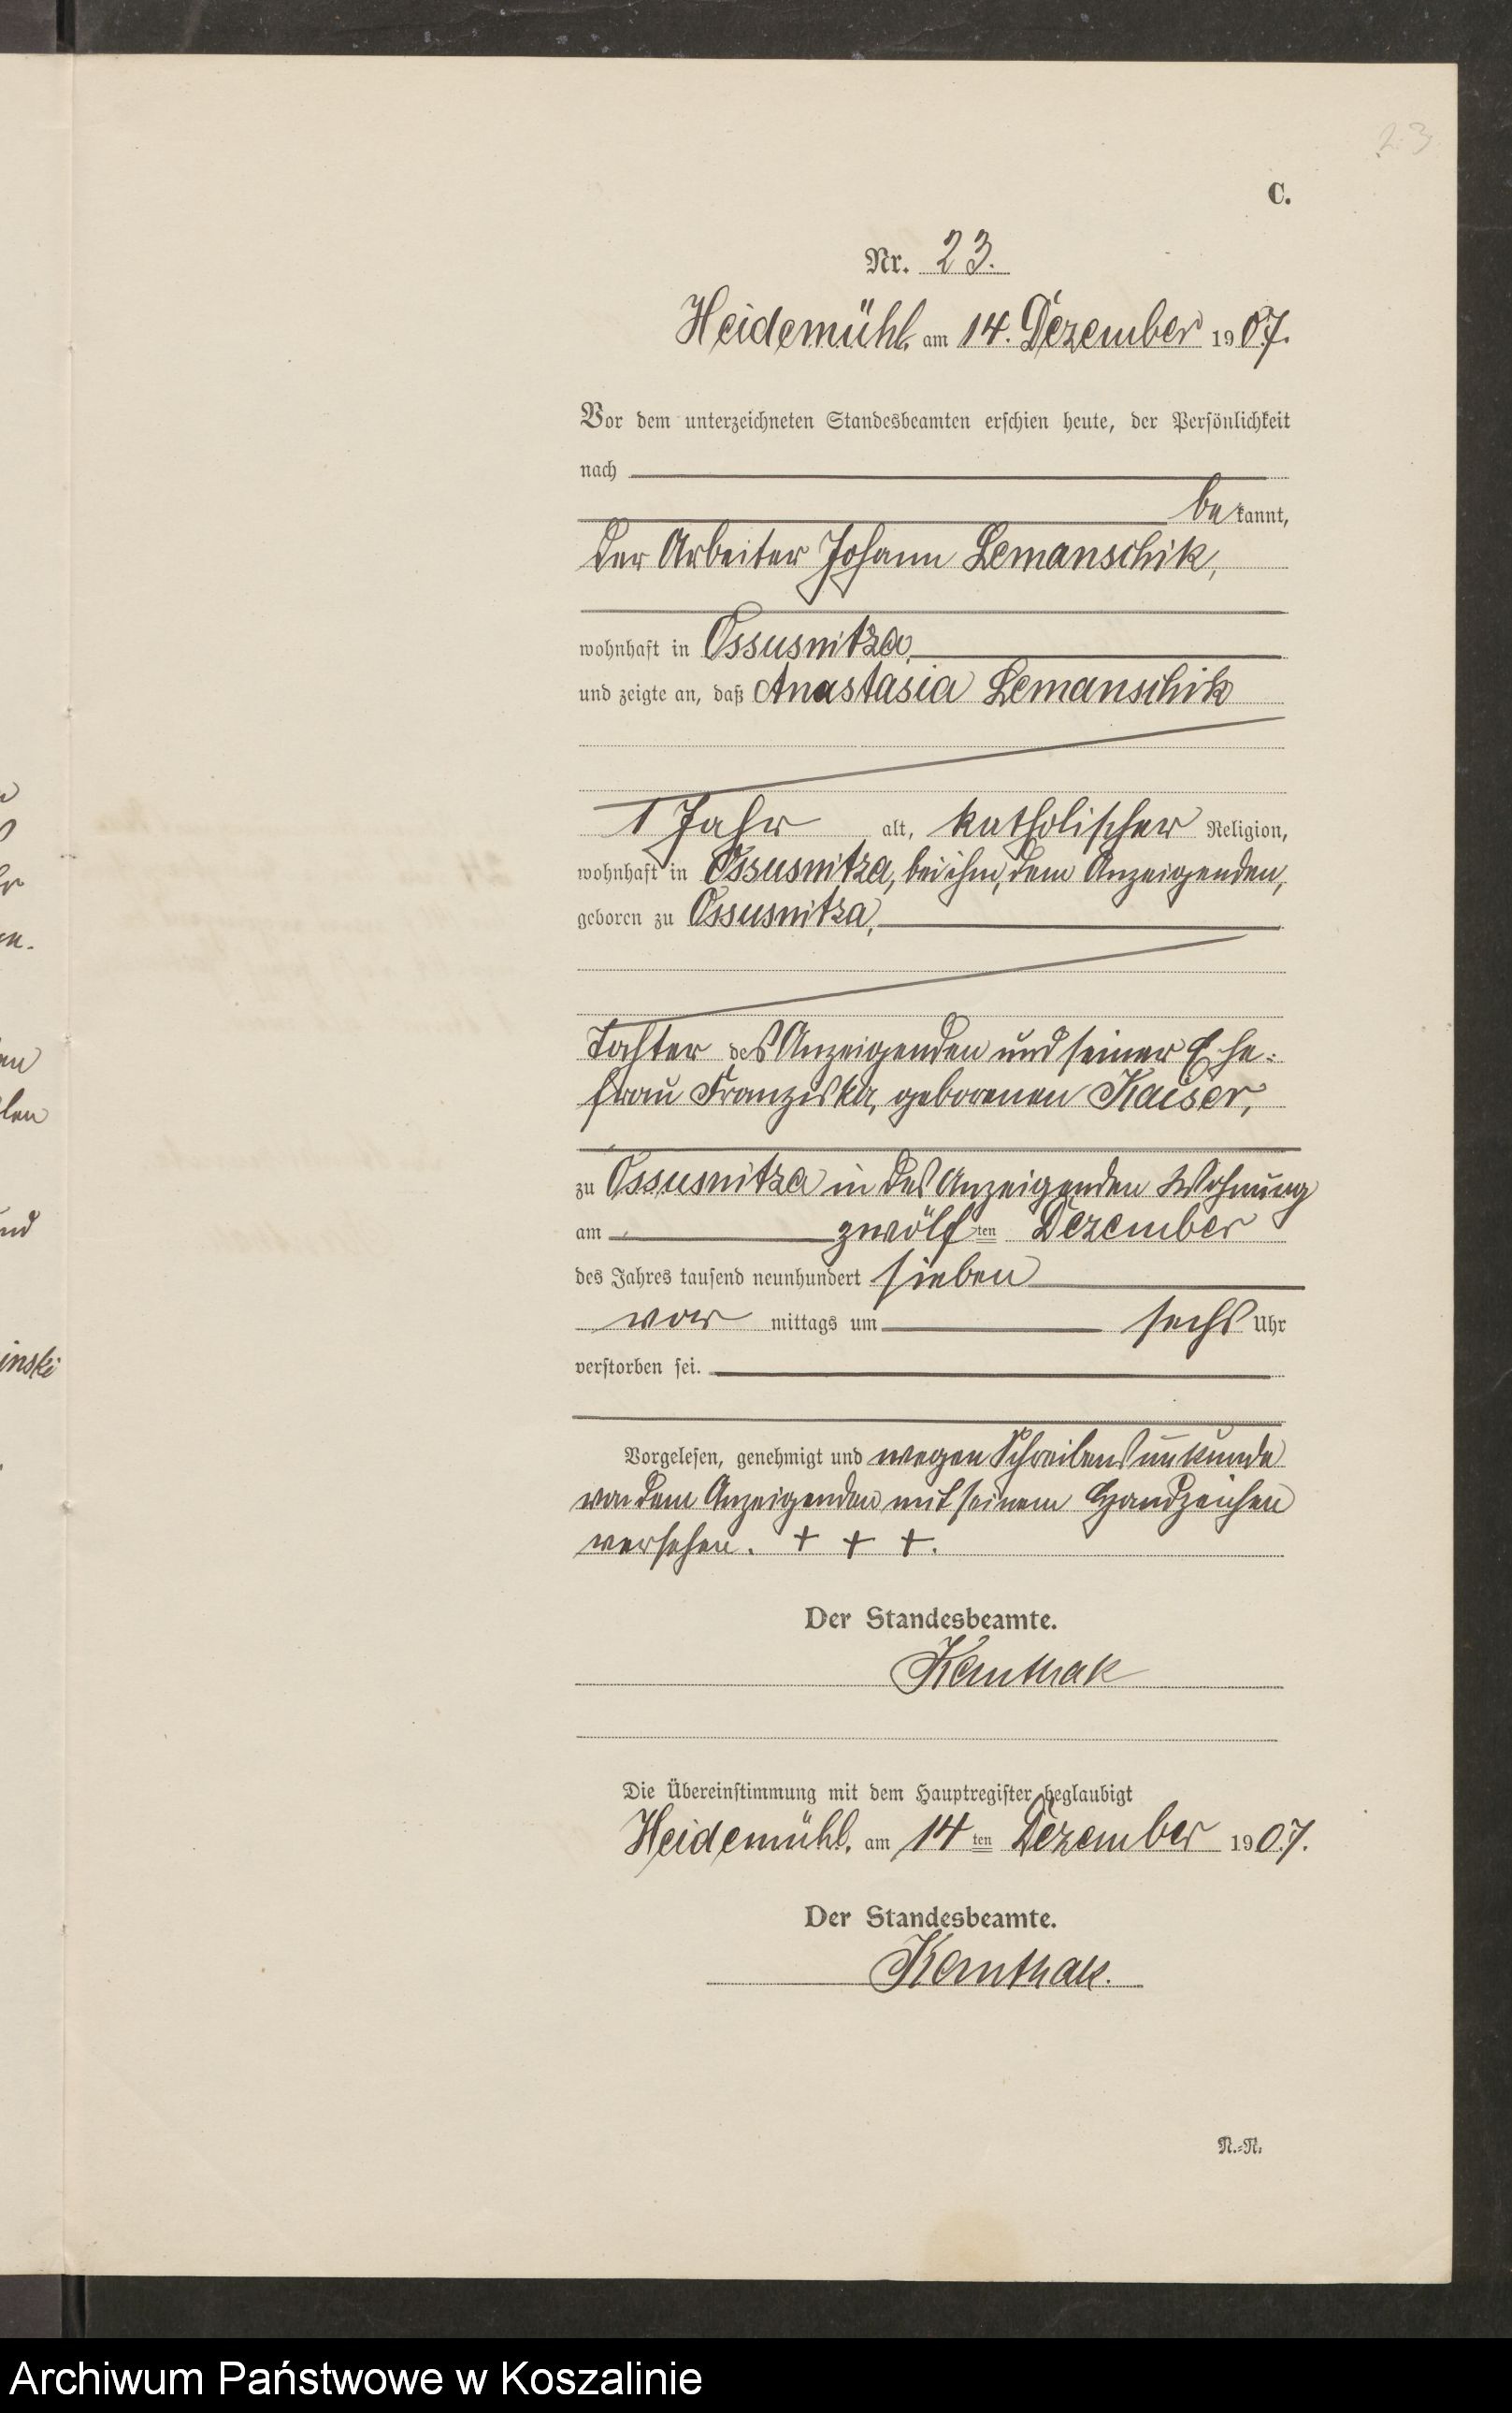 23
C.
Nr. 23.
Heidemühl, am 14. Dezember 1907.
Vor dem unterzeichneten Standesbeamten erschien heute, der Persönlichkeit
nach
bekannt,
der Arbeiter Johann Lemanschik,
wohnhaft in Ossusnitza,
und zeigte an, daß Anastasia Lemanschik
1 Jahr alt, katholischer Religion,
wohnhaft in Ossusnitza, bei ihm, dem Anzeigenden,
geboren zu Ossusnitza,
Tochter des Anzeigenden und seiner Ehe-
frau Franziska, geborenen Kaiser,
zu Ossusnitza in des Anzeigenden Wohnung
am zwölften Dezember
des Jahres tausend neunhundert sieben
vor mittags um sechs Uhr
verstorben sei.
Vorgelesen, genehmigt und wegen Schreibensunkunde
von dem Anzeigenden mit seinem Handzeichen
versehen. + + +.
Der Standesbeamte.
Die Übereinstimmung mit dem Hauptregister beglaubigt
Heidemühl, am 14ten Dezember 1907.
Der Standesbeamte.
N.-N.
inski
Archiwum Państwowe w Koszalinie